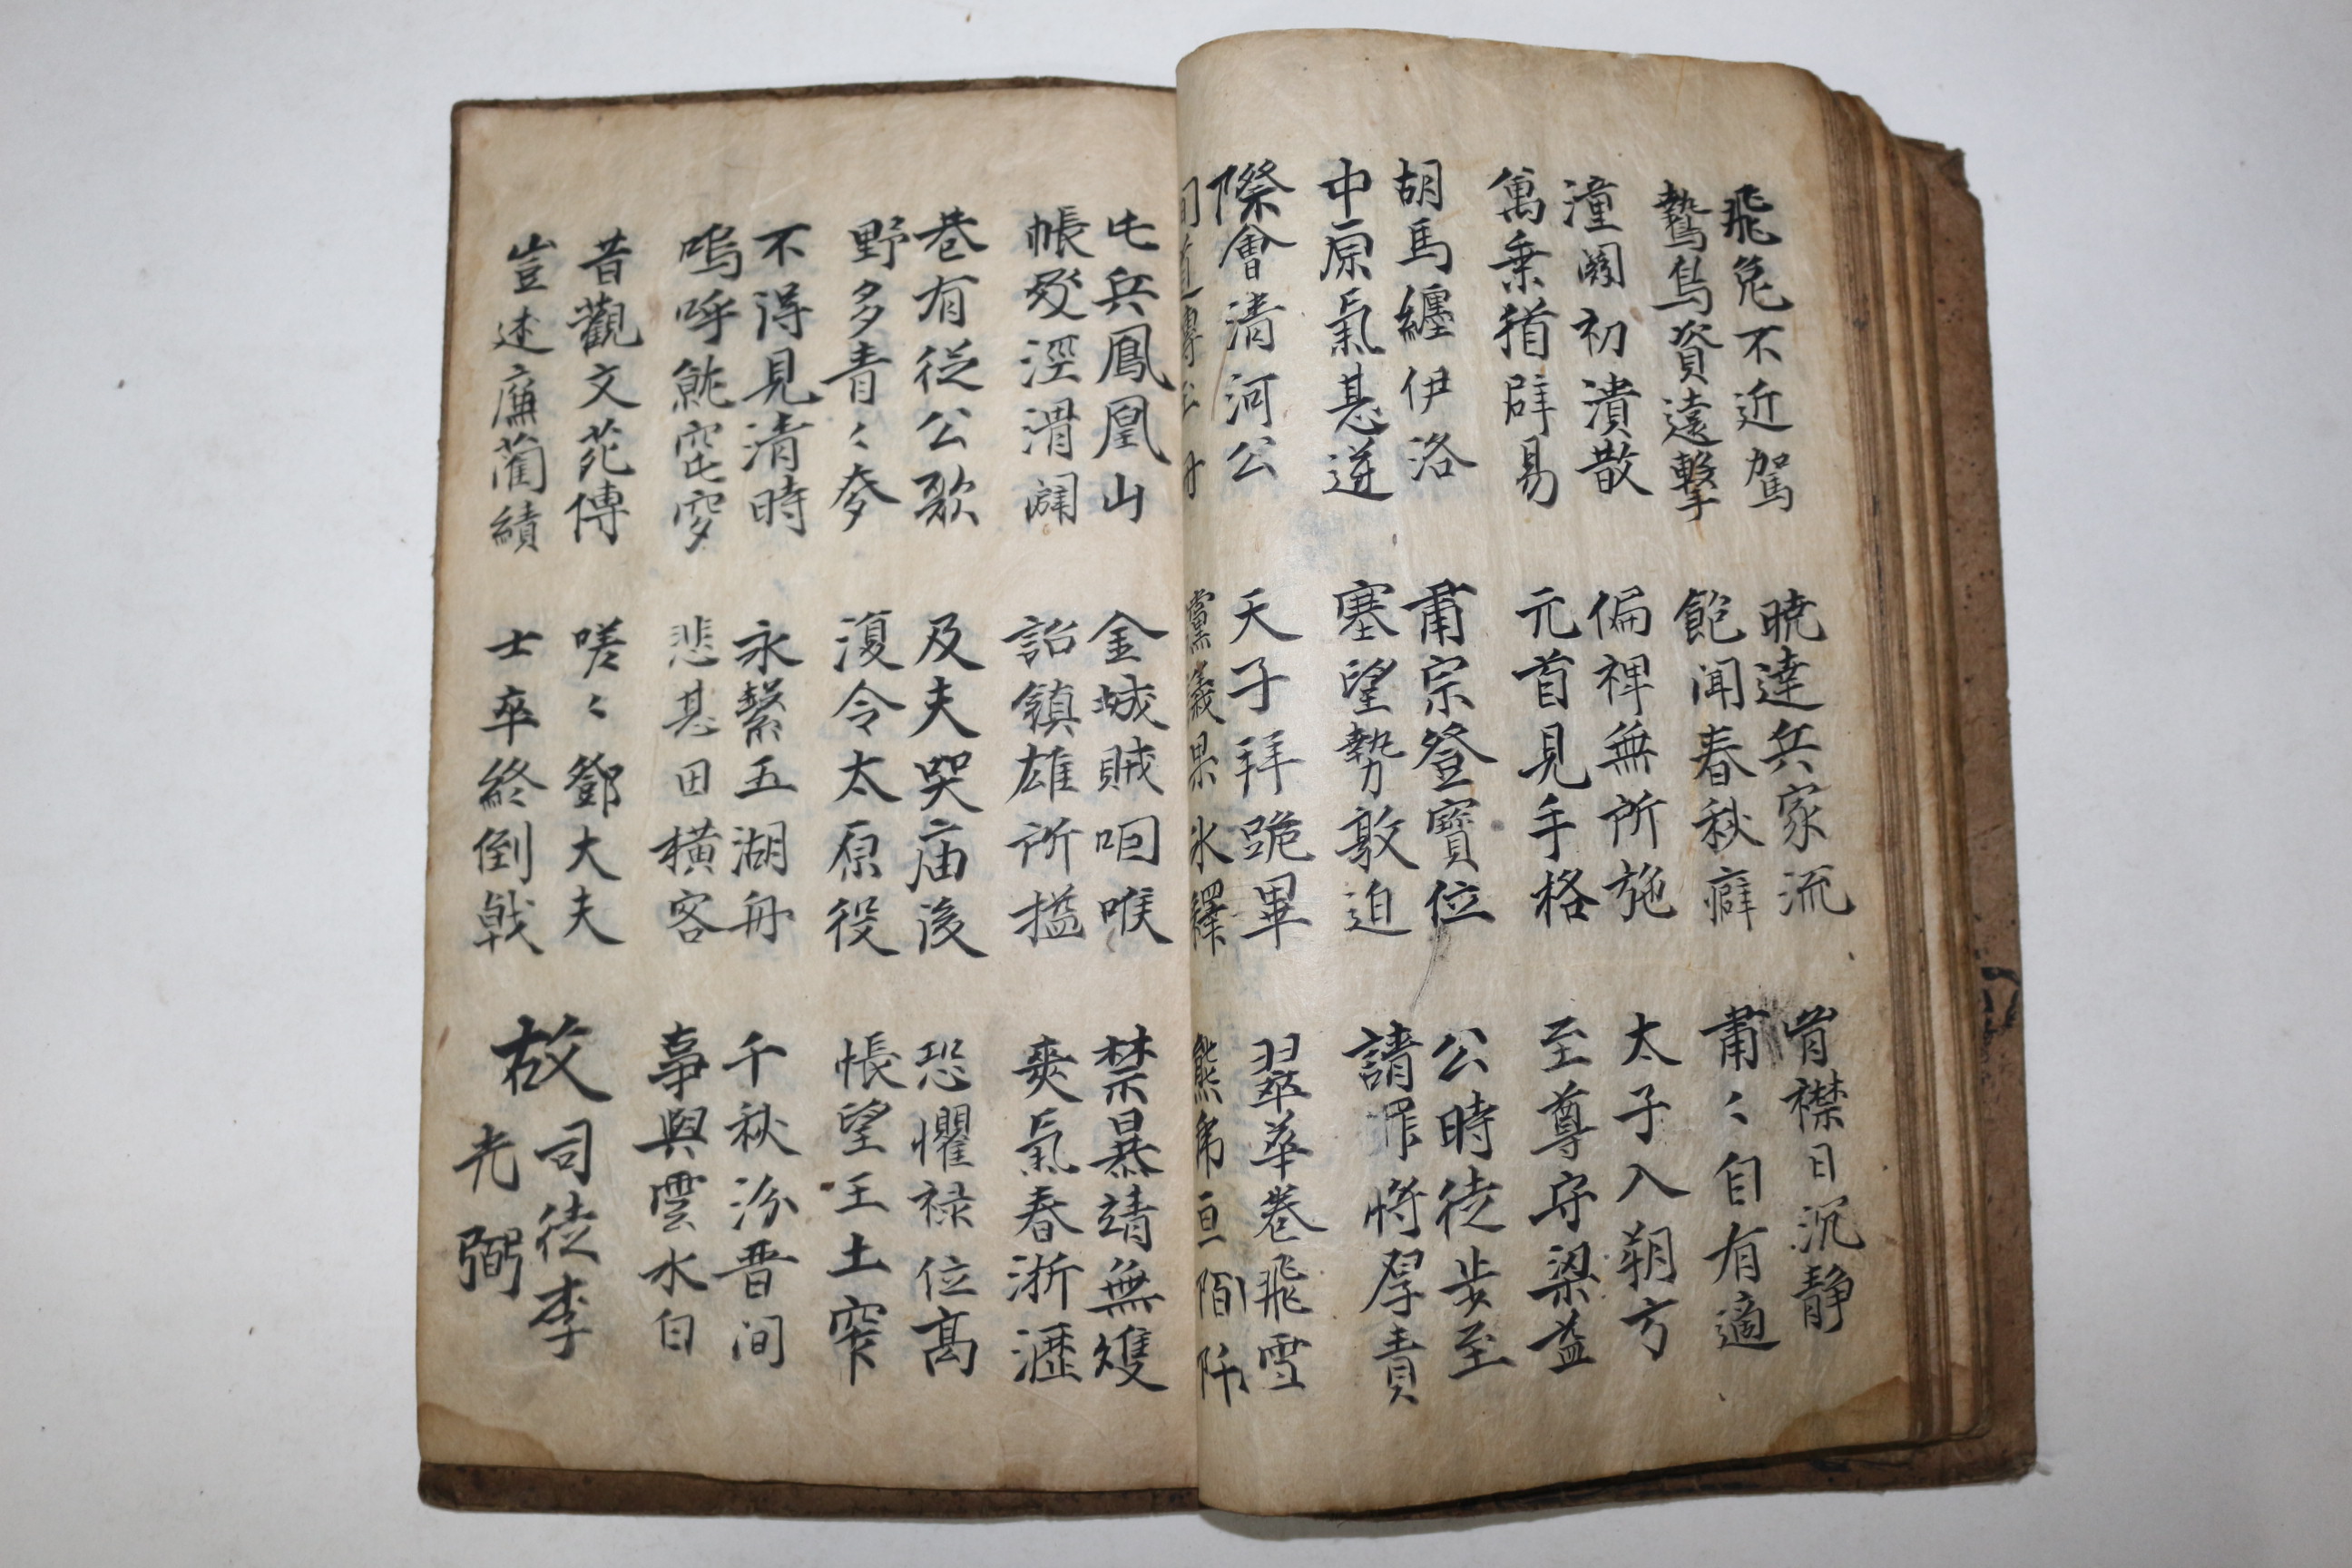 飛兔不近駕
鷙鳥資遠擊
曉達兵家流
飽聞春秋癖
胷襟日沉静
肅〻自有適
潼關初潰散
萬乗猶辟易
偏裨無所施
元首見手格
太子入朔方
至尊守梁益
胡馬纏伊洛
中原氣甚逆
肅宗登寶位
塞望勢敦迫
公時徒步至
請罪將厚責
際會清河公
間道傳玉冊
天子拜跪畢
讜議果氷繹
翠華卷飛雪
熊虎亘陌阡
屯兵鳳凰山
帳殿涇渭闢
金城賊咽喉
詔鎮雄所搤
禁暴靖無雙
爽氣春淅瀝
巷有從公歌
野多青〻麥
及夫哭庙後
復令太原役
恐懼禄位高
帳望王土窄
不得見清時
嗚呼就窀穸
永繫五湖舟
悲甚田橫客
千秋汾晋间
事與雲水白
昔觀文苑傳
豈述廉藺績
嗟〻鄧大夫
士卒終倒戟
故司徒李光弼